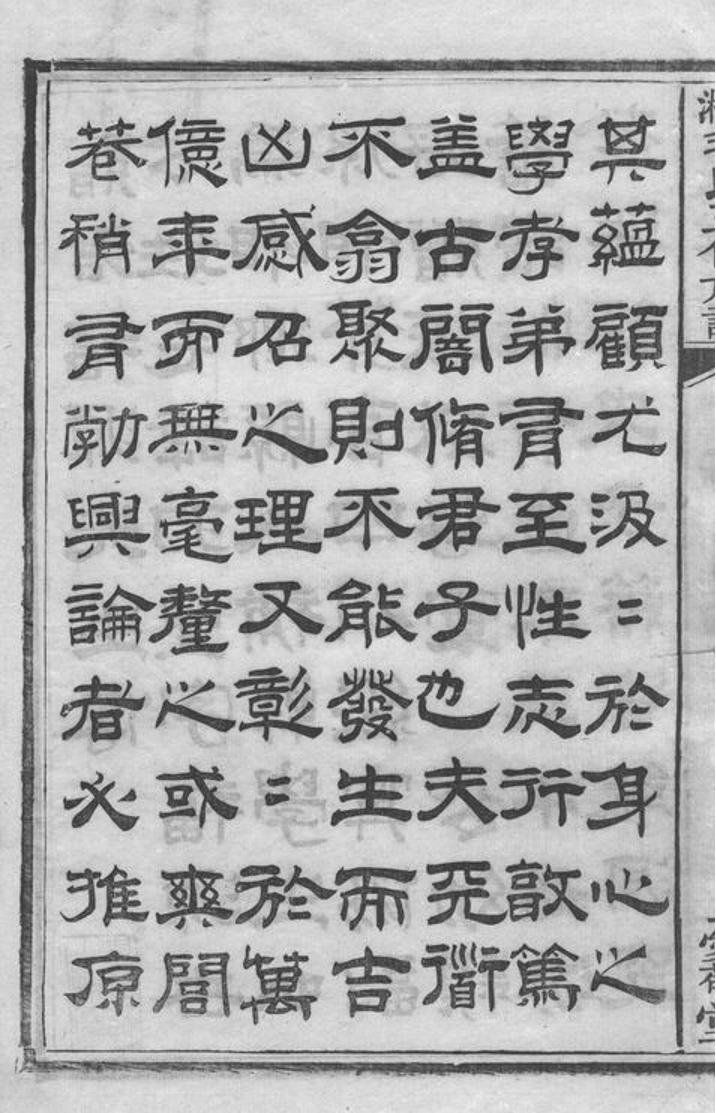 其蘊顧尤汲〻於身心之
學孝弟有至性志行敦篤
盖古闇脩君子也夫天衜
不翕聚則不能發生而吉
凶感召之理又彰〻於萬
億年而無毫釐之或爽閭
巷稍有勃興論者必推原